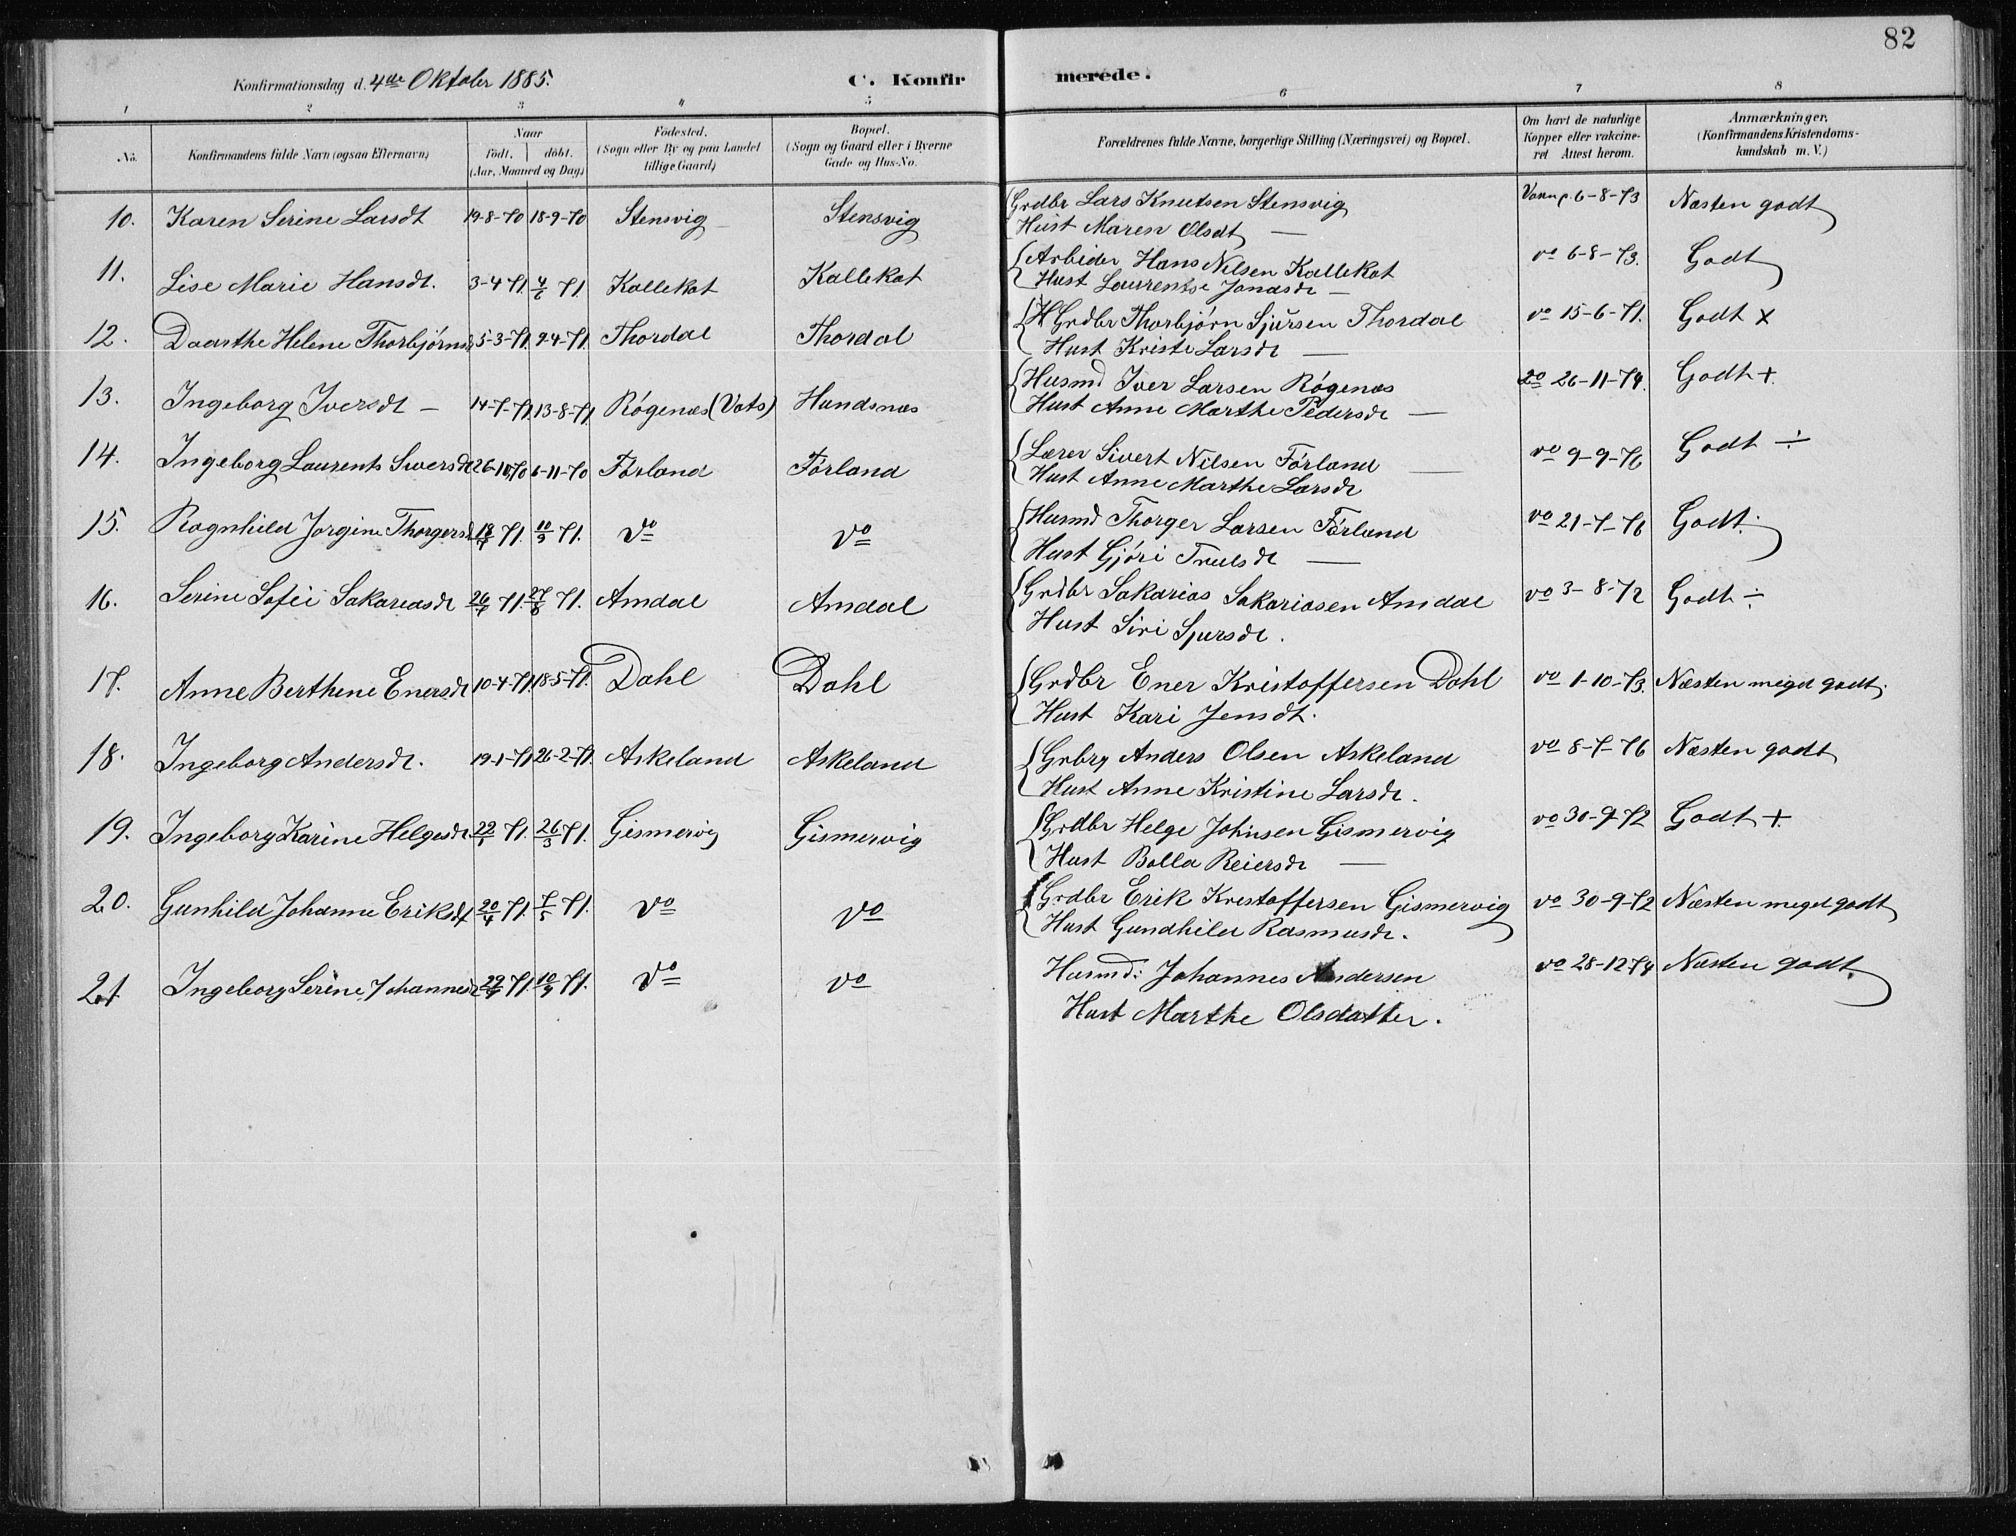 82
Konfirmationsdag d. 4de Oktober 1885.
C. Konfirmerede.
1 2 3 4 5 6 7 8
No.
Konfirmandens fulde Navn (ogsaa Efternavn)
Naar
født. døbt.
(Aar, Maaned og Dag)
Fødested.
(Sogn eller By og paa Landet
tillige Gaard)
Bopæl.
(Sogn og Gaard eller i Byerne
Gade og Hus-No.
Forældrenes fulde Navne, borgerlige Stilling (Næringsvei) og Bopæl.
Om havt de naturlige
Kopper eller vakcine-
ret Attest herom.
Anmærkninger,
(Konfirmandens Kristendoms-
kundskab m. V.)
10. Karen Serine Larsdt 19-8-70 18-9-70 Stensvig Stensvig Grdbr Lars Knutsen Stensvig 6-8-73 Næsten godt
Hust Maren Olsdt —
11. Lise Marie Hansdt. 3-4-71 4/6 71. Kallekot Kallekot Arbider Hans Nilsen Kallekot vo 6-8-73. Godt
Hust Laurentse Jonasdt —
12. Daarthe Helene Thorbjørns 5-3-71. 9-4-71. Thordal Thordal HGrdbr Thorbjørn Sjursen Thordal vo 15-6-71. Godt x
Hust Kriste Larsdt —
13. Ingeborg Iversdt — 14-7-71. 13-8-71 Røgenæs (Vats) Handsnæs Husmd Iver Larsen Røgenæs 26-11-74. Godt +
Hust Anne Marthe Pedersdt —
14. Ingeborg Laurents Siversdt 26-10-70 6-11-70 Førland Førland Lærer Sivert Nilsen Førland vo 9-9-76 Godt ÷
Hust Anne Marthe Larsdt
15. Ragnhild Jorgine Thorgersd 18/4 71. 10/5 71. vo vo Husmd Thorger Larsen Førland vo 21-7-76 Godt.
Hust Gjøri Trulsdt —
16. Serine Sofie Sakariasdt 26/7 71. 27/8 71. Amdal Amdal Grdbr Sakarias Sakariasen Amdal vo 3-8-72 Godt ÷
Hust Siri Sjursdt.
17. Anne Berthene Enersdt 10-4-71. 18-5-71. Dahl Dahl Grdbr Ener Kristoffersen Dahl vo 1-10-73. Næsten meget godt.
Hust Kari Jensdt.
18. Ingeborg Andersdt. 19-1-71 26-2-71. Askeland Askeland Grbrg Anders Olsen Askeland vo 8-7-76 Næsten godt
Hust Anne Kristine Larsdt.
19. Ingeborg Karine Helgesdt 22/1 71. 26/3 71. Gismervig Gismervig Grdbr Helge Johnsen Gismervig vo 30-9-72 Godt +
Hust Bolla Reiersdt —
20. Gunhild Johanne Eriksdt 20/4 71. 7/5 71. vo vo Grdbr Erik Kristoffersen Gismervig vo 30-9-72 Næsten meget godt
Hust Gundhild Rasmusdt.
21. Ingeborg Serine Johannesd 71. 71. vo vo Husmd: Johannes Andersen vo 28-12-74 Næsten godt.
Hust Marthe Olsdatter.